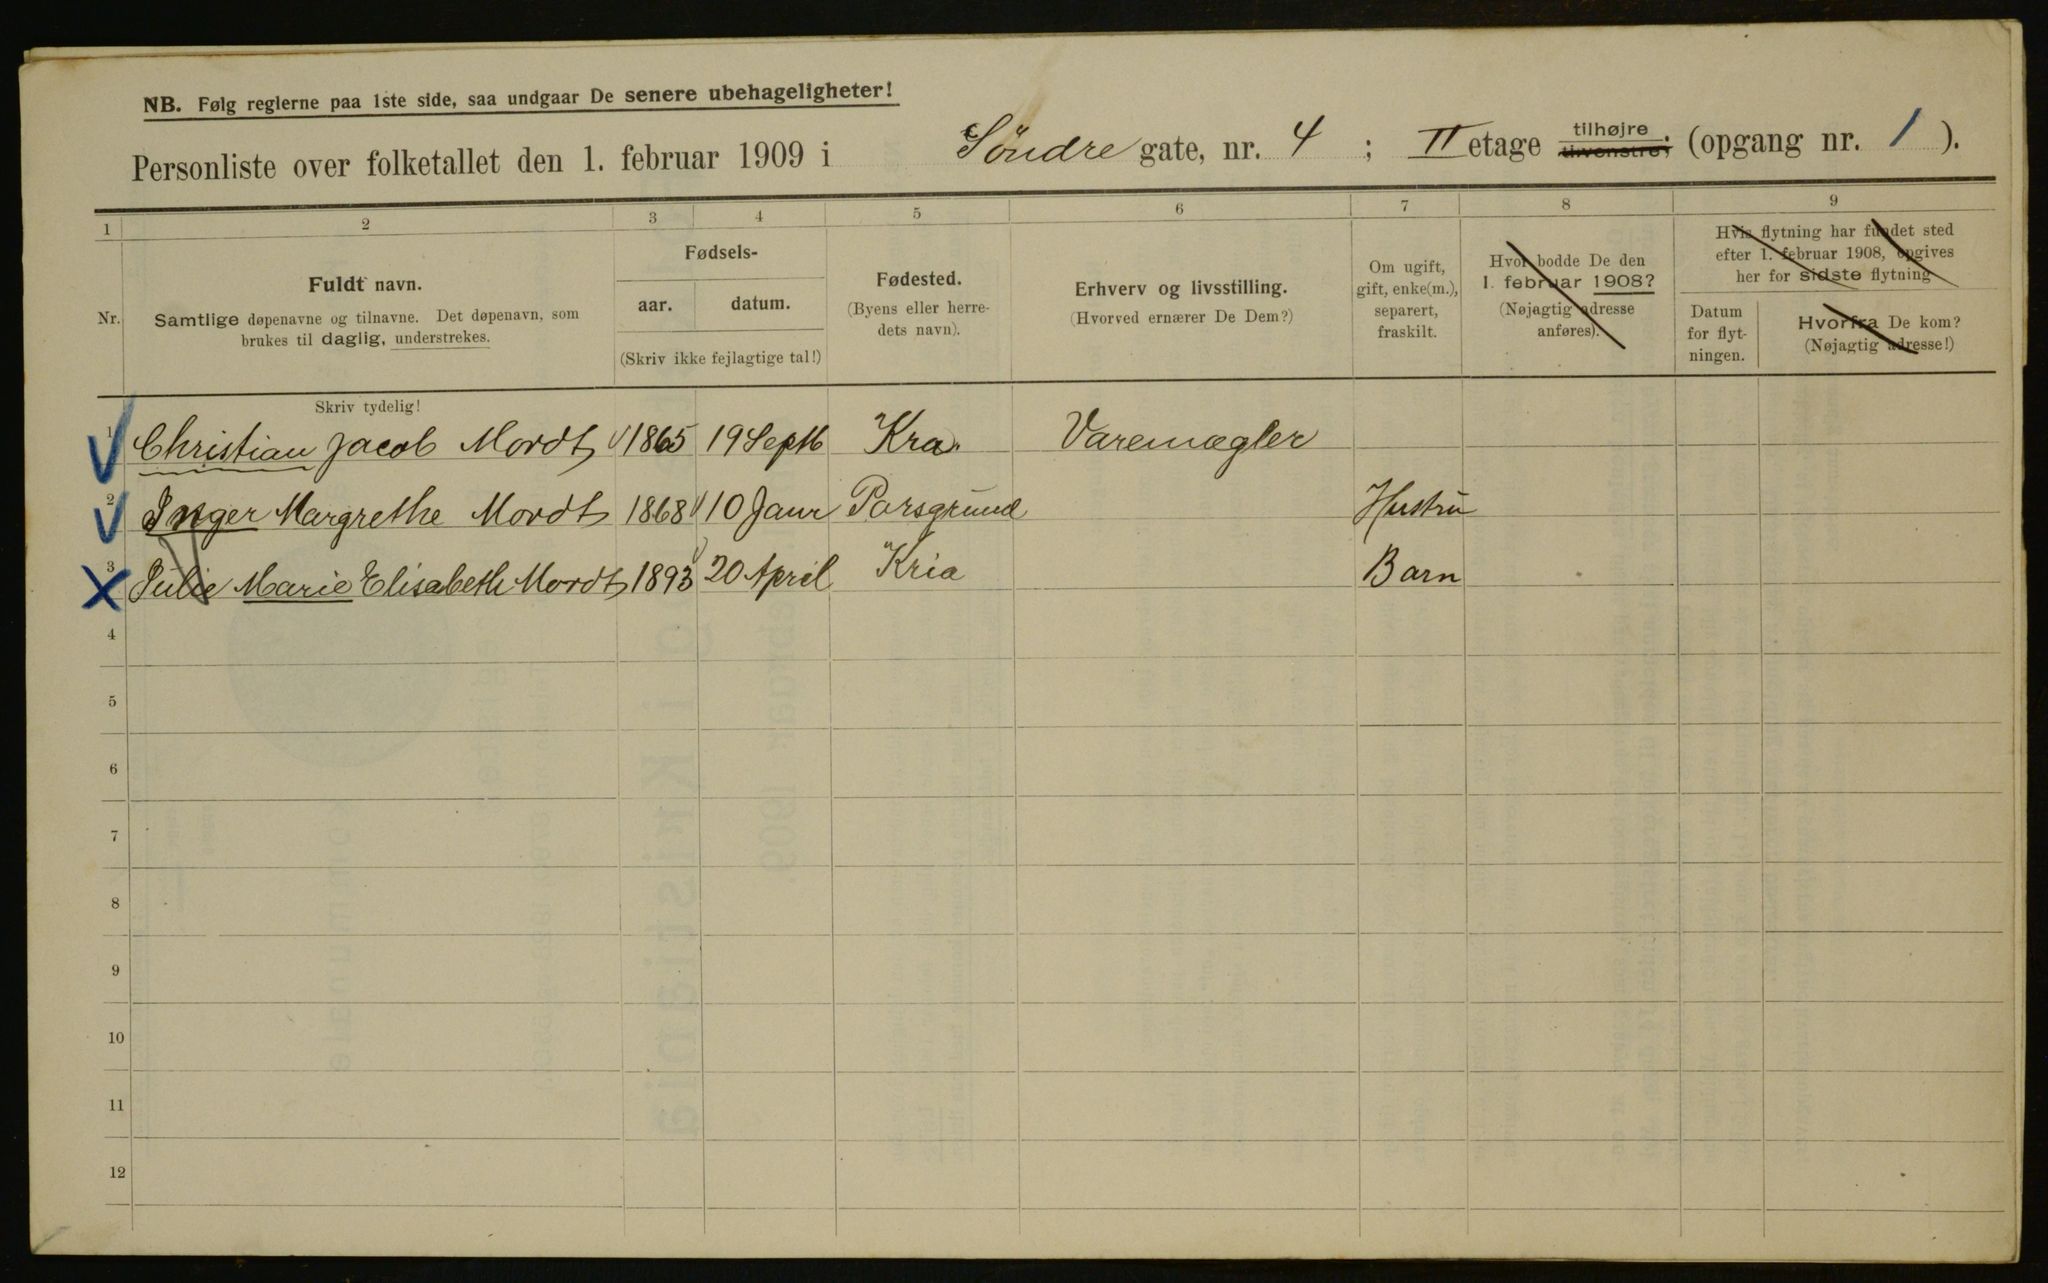 NB. Følg reglerne paa 1ste side, saa undgaar De senere ubehageligheter!
Personliste over folketallet den 1. februar 1909 i Söndre gate, nr. 4 ; II etage tilhøjre tilvenstre; (opgang nr. 1 ).
1 2 3 4 5 6 7 8 9
Nr.
Fuldt navn.
Samtlige døpenavne og tilnavne. Det døpenavn, som
brukes til daglig, understrekes.
Fødsels-
aar. datum.
(Skriv ikke fejlagtige tal!)
Fødested.
(Byens eller herre-
dets navn).
Erhverv og livsstilling.
(Hvorved ernærer De Dem?)
Om ugift,
gift, enke(m.),
separert,
fraskilt.
Hvor bodde De den
1. februar 1908?
(Nøjagtig adresse
anføres).
Hvis flytning har fundet sted
efter 1. februar 1908, opgives
her for sidste flytning
Datum
for flyt-
ningen.
Hvorfra De kom?
(Nøjagtig adresse!)
Skriv tydelig!
1 Christian Jacob Mordt 1865 19 Septb Kra. Varemægler
2 Inger Margrethe Mordt 1868 10 Janr Porsgrund Hustru
3 Julie Marie Elisabeth Mordt 1893 20 April Kria Barn
4
5
6
7
8
9
10
11
12